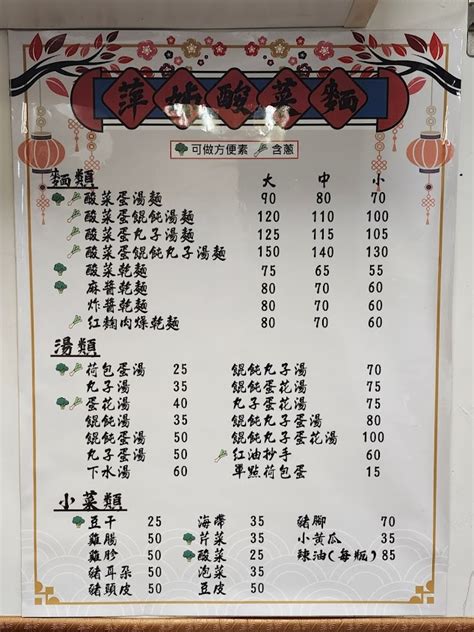 萍姑酸菜麵
可做方便素 含蔥
麵類 大 中 小
酸菜蛋湯麵 90 80 70
酸菜蛋餛飩湯麵 120 110 100
酸菜蛋丸子湯麵 125 115 105
酸菜蛋餛飩丸子湯麵 150 140 130
酸菜乾麵 75 65 55
麻醬乾麵 80 70 60
炸醬乾麵 80 70 60
紅麴肉燥乾麵 80 70 60
湯類
荷包蛋湯 25 餛飩丸子湯 70
丸子湯 35 餛飩蛋花湯 75
蛋花湯 40 丸子蛋花湯 75
餛飩湯 35 餛飩丸子蛋湯 80
餛飩蛋湯 50 餛飩丸子蛋花湯 100
丸子蛋湯 50 紅油抄手 60
下水湯 60 單點荷包蛋 15
小菜類
豆干 25 海帶 35 豬腳 70
雞腸 50 芹菜 35 小黃瓜 35
雞胗 50 酸菜 25 辣油(每瓶) 85
豬耳朵 50 泡菜 35
豬頭皮 50 豆皮 50